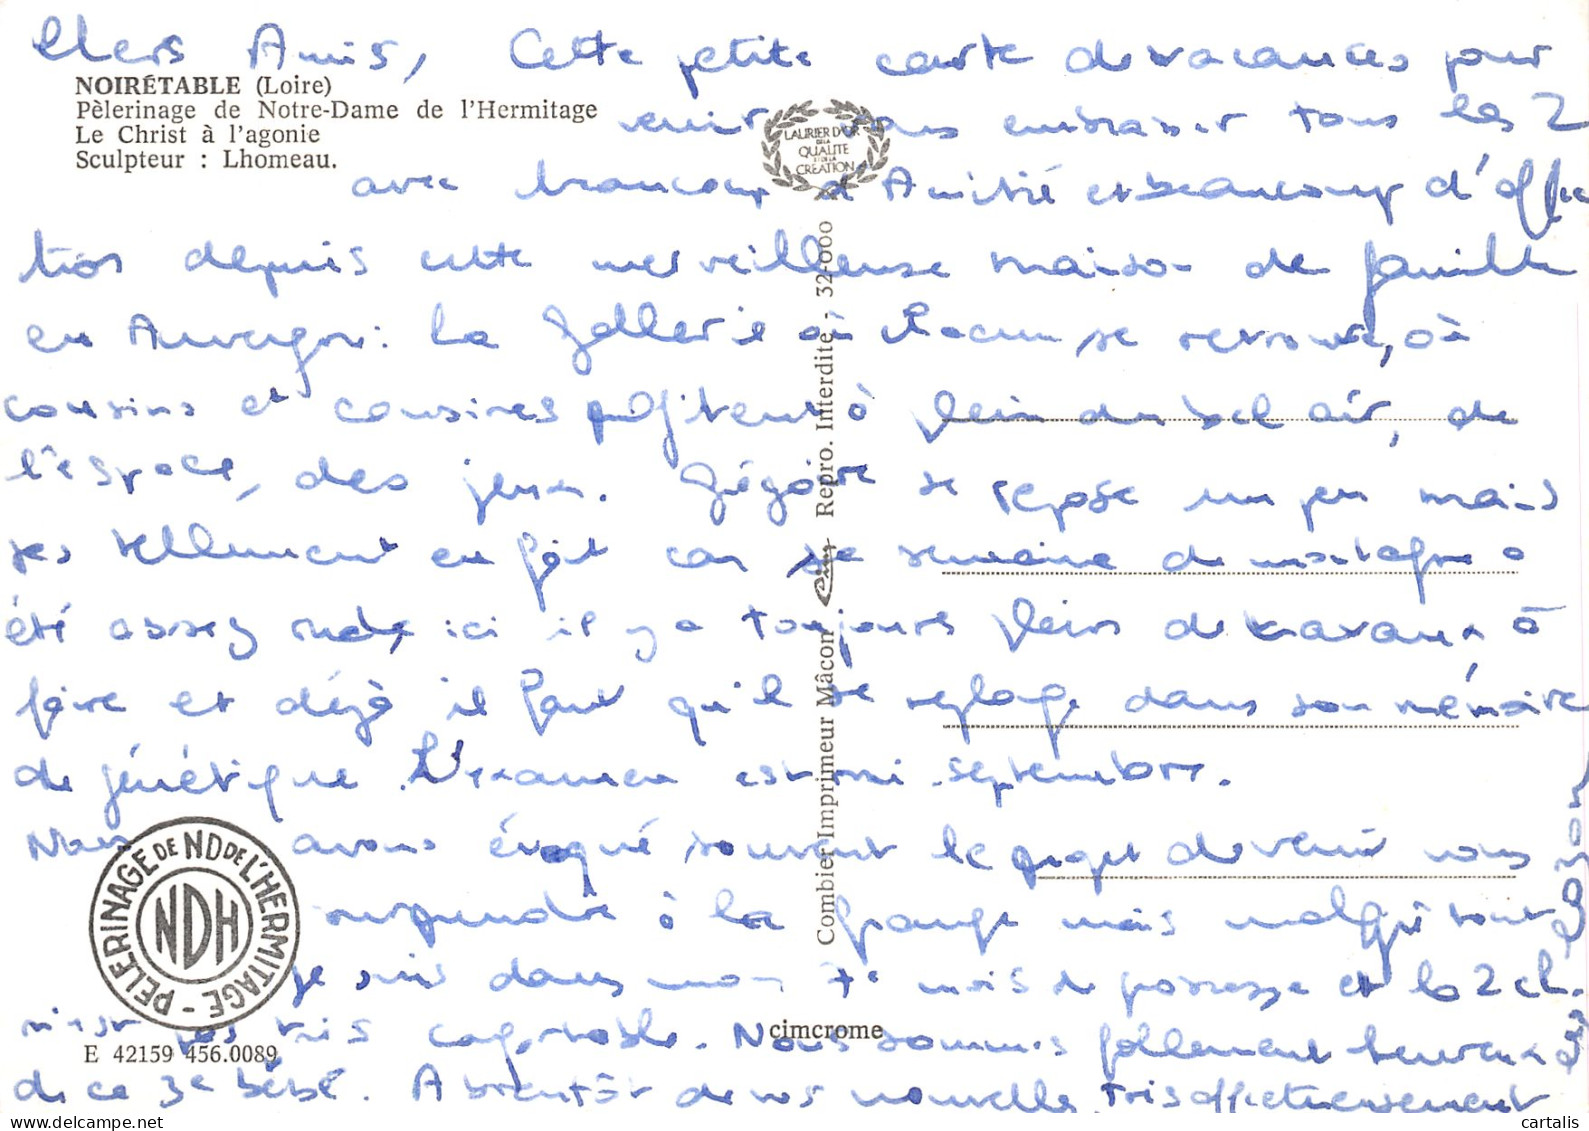 Chers Amis, Cette petite carte de vacances pour
NOIRÉTABLE (Loire)
Pèlerinage de Notre-Dame de l'Hermitage
Le Christ à l'agonie
Sculpteur : Lhomeau.
LAURIER D'OR
DE LA
QUALITE
ET DE LA
CREATION
venir vous embrasser tous les 2
avec beaucoup d'Amitié et beaucoup d'affec
tion depuis cette merveilleuse maison de famille
en Auvergne : La où chacun se retrouve, où
cousins et cousines profitent à plein du bel air, de
l'espace, des jeux. Grégoire se repose un peu mais
pas tellement en fait car sa semaine de montagne a
été assez rude, ici il y a toujours plein de travaux à
faire et déjà il faut qu'il se replonge dans son mémoire
de génétique. L'examen est mi-septembre.
Nous avons évoqué souvent le projet de venir vous
surprendre à la grange mais malgré tout
je suis dans mon 7e mois de grossesse et la 2ch.
n'est pas très confortable. Nous sommes follement heureux
de ce 3e bébé. A bientôt de vos nouvelles, très affectueusement
PELERINAGE DE ND DE L'HERMITAGE
NDH
E 42159 456.0089
Combier Imprimeur Mâcon Cim Repro. Interdite - 32-000
cimcrome
cartalis.com